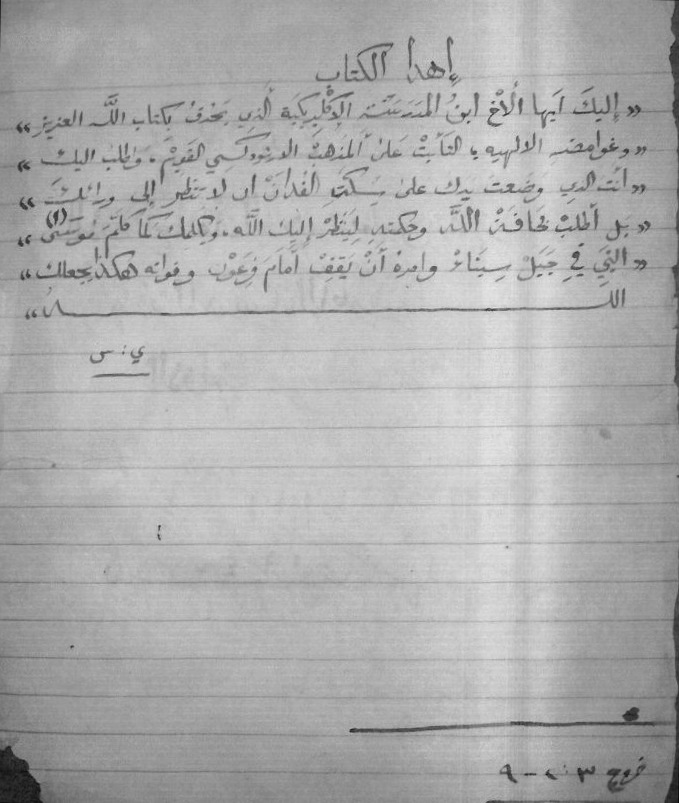 إهدا الكتاب
« إليكَ ايها الأخ ابنُ المدرسة الإكليريكية الذي يحدق بكتاب اللَّه العزيز »
« وغوامضه الالهيه، الثابتْ علىٰ المذهبْ الارثوذكسي القويمْ، واطلب اليك »
« انت الذي وضعت يدك علىٰ سِكَّةِ الفدانْ ان لا تنظر إلى ورائكَ »
« بل أطلبْ مخافةْ اللَّه وحكمته لِيَنظُرْ إليك اللَّه، ويكلمك كما كلمَ مُوسَىٰ (١) »
« النَّبي فيِ جَبَلْ سِينَاءْ وامرهُ أنْ يَقفْ أمامَ فِرعَوْن وقواته هكذا يجعلك »
اللـــــــه »
ي. س
خروج ٣ : ٢ - ٩